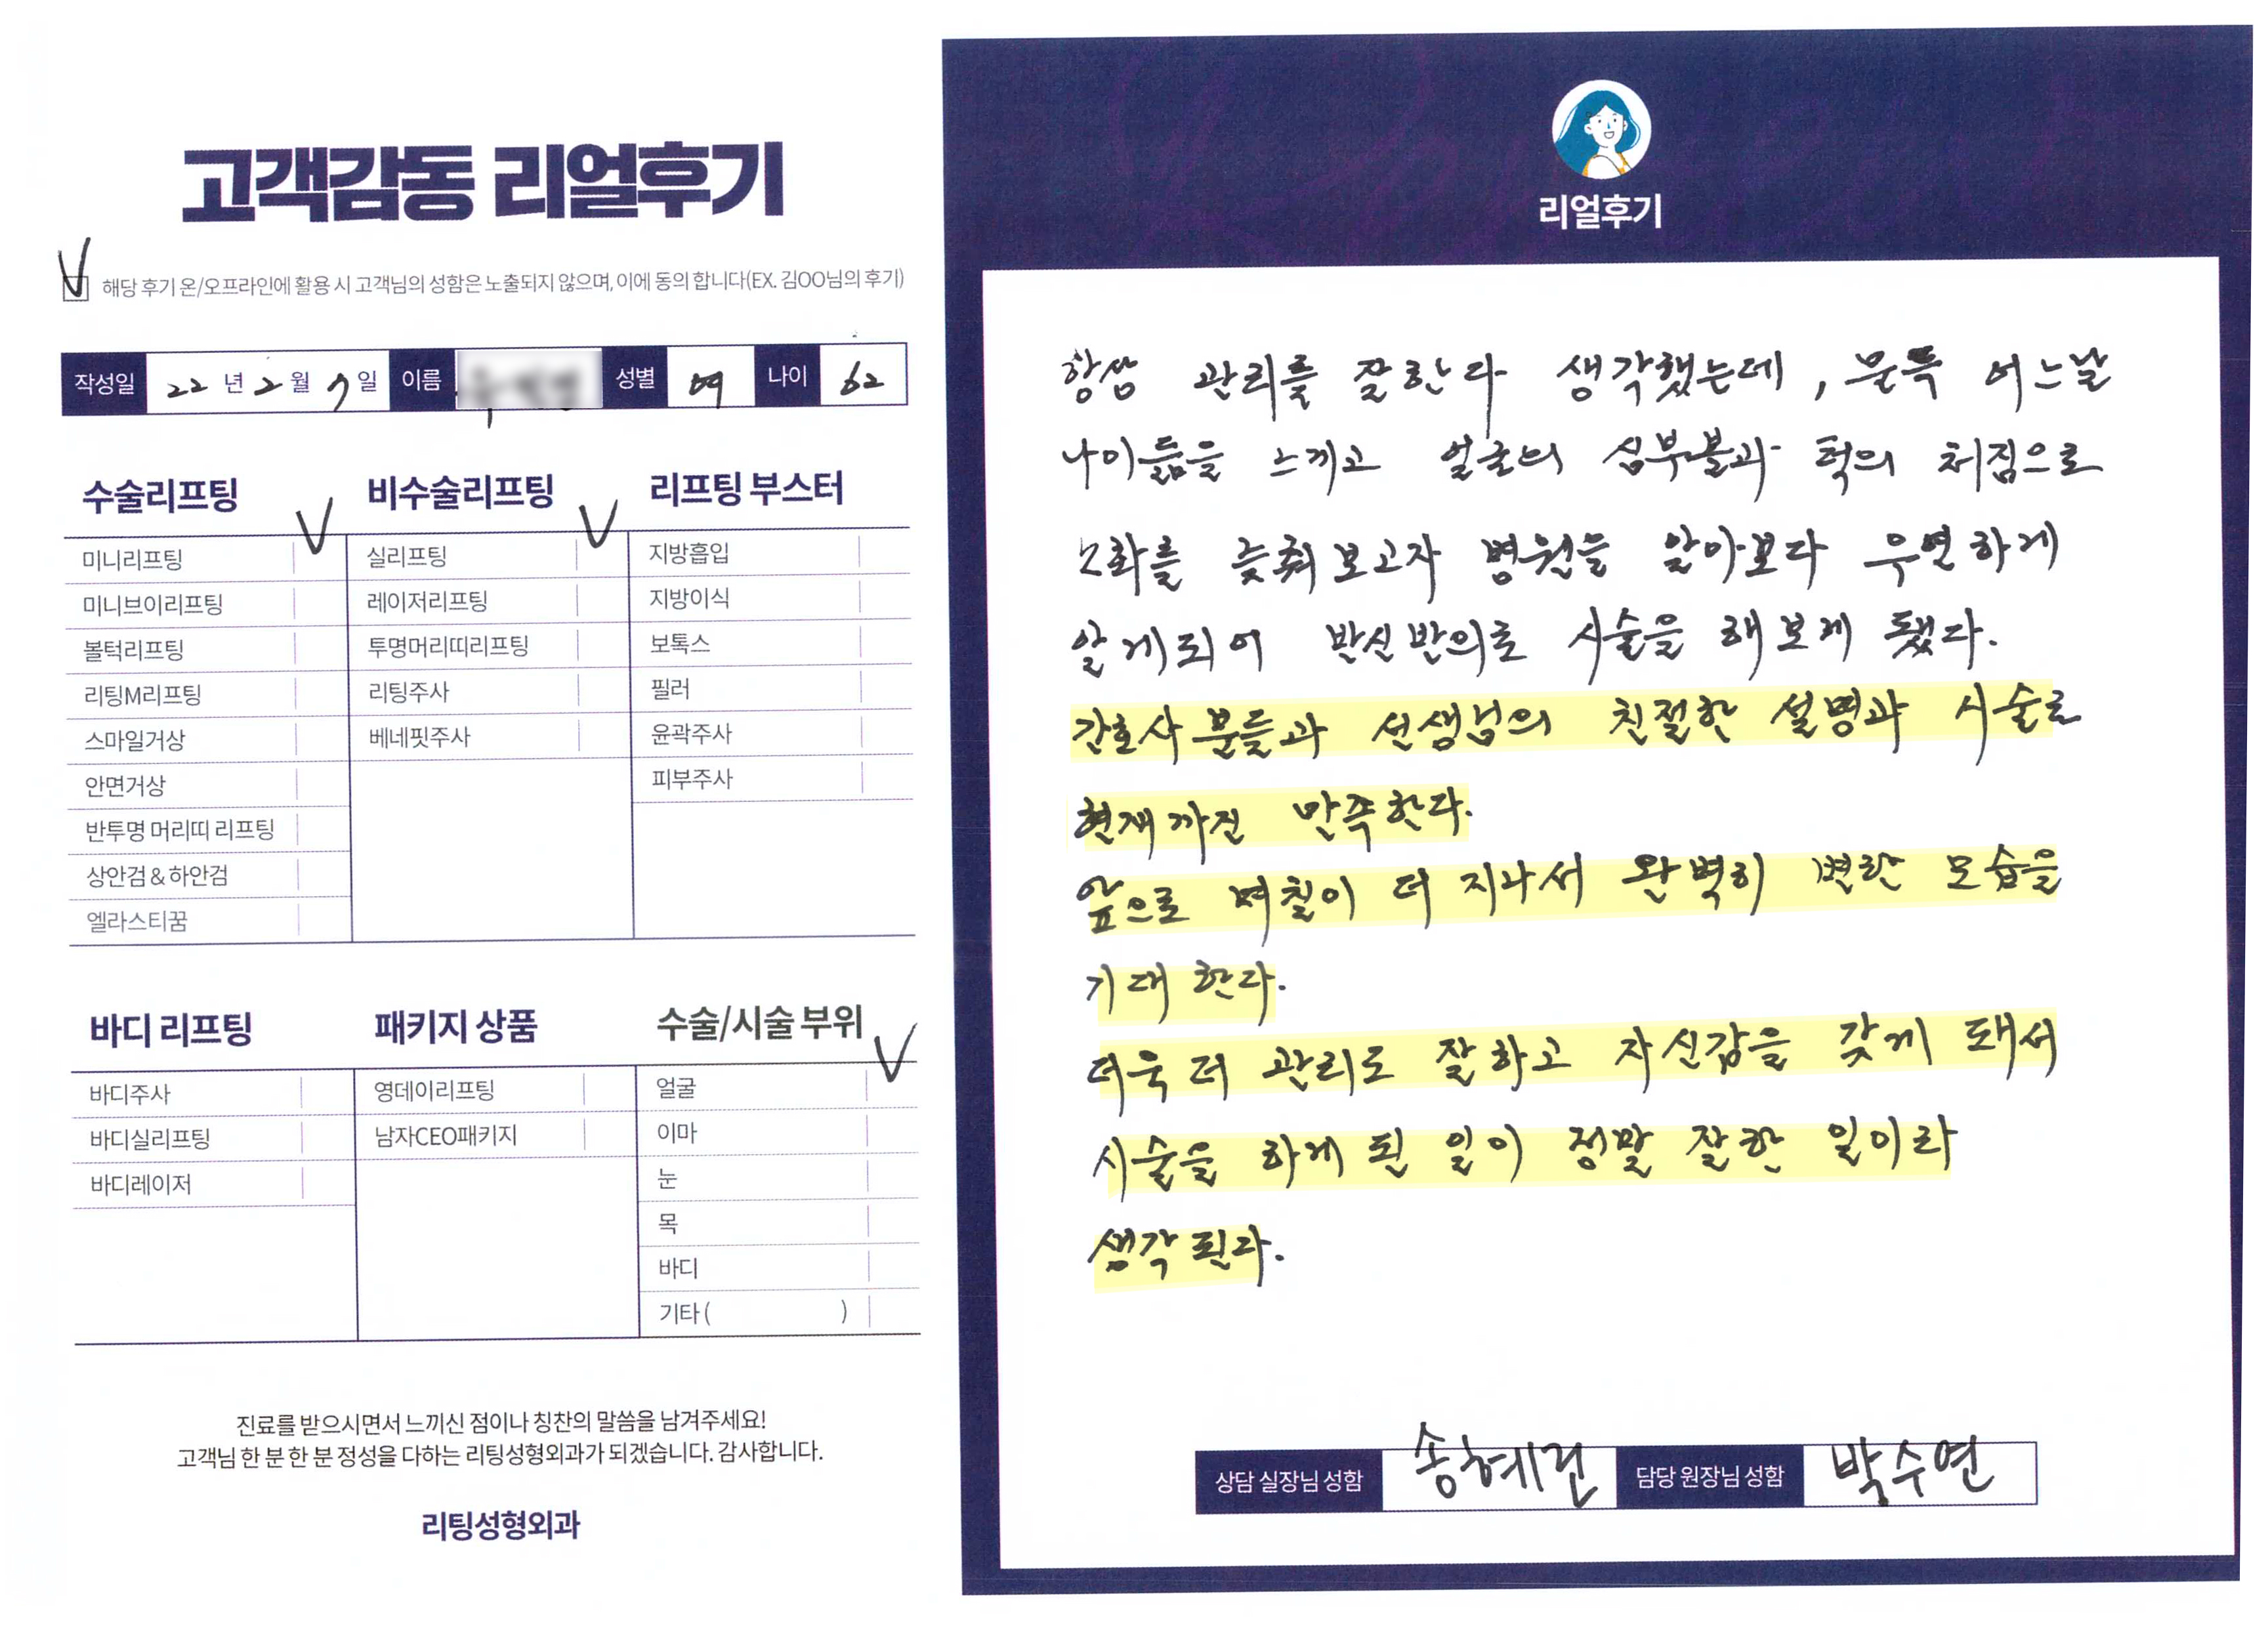 고객감동 리얼후기
해당 후기 온/오프라인에 활용 시 고객님의 성함은 노출되지 않으며, 이에 동의 합니다(EX. 김OO님의 후기)
작성일 22 년 2 월 7 일 이름 성별 여 나이 62
수술리프팅
미니리프팅
미니브이리프팅
볼턱리프팅
리팅M리프팅
스마일거상
안면거상
반투명 머리띠 리프팅
상안검 & 하안검
엘라스티꿈
비수술리프팅
실리프팅
레이저리프팅
투명머리띠리프팅
리팅주사
베네핏주사
리프팅 부스터
지방흡입
지방이식
보톡스
필러
윤곽주사
피부주사
바디 리프팅
바디주사
바디실리프팅
바디레이저
패키지 상품
영데이리프팅
남자CEO패키지
수술/시술 부위
얼굴
이마
눈
목
바디
기타 ( )
진료를 받으시면서 느끼신 점이나 칭찬의 말씀을 남겨주세요!
고객님 한 분 한 분 정성을 다하는 리팅성형외과가 되겠습니다. 감사합니다.
리팅성형외과
리얼후기
항상 관리를 잘한다 생각했는데, 문득 어느날
나이듦을 느끼고 얼굴의 심부볼과 턱의 처짐으로
노화를 늦춰보고자 병원을 알아보다 우연하게
알게되어 반신반의로 시술을 해보게 됐다.
간호사 분들과 선생님의 친절한 설명과 시술로
현재까진 만족한다.
앞으로 며칠이 더 지나서 완벽히 변한 모습을
기대 한다.
더욱 더 관리도 잘하고 자신감을 갖게 돼서
시술을 하게 된 일이 정말 잘한 일이라
생각된다.
상담 실장님 성함 송혜린 담당 원장님 성함 박수연